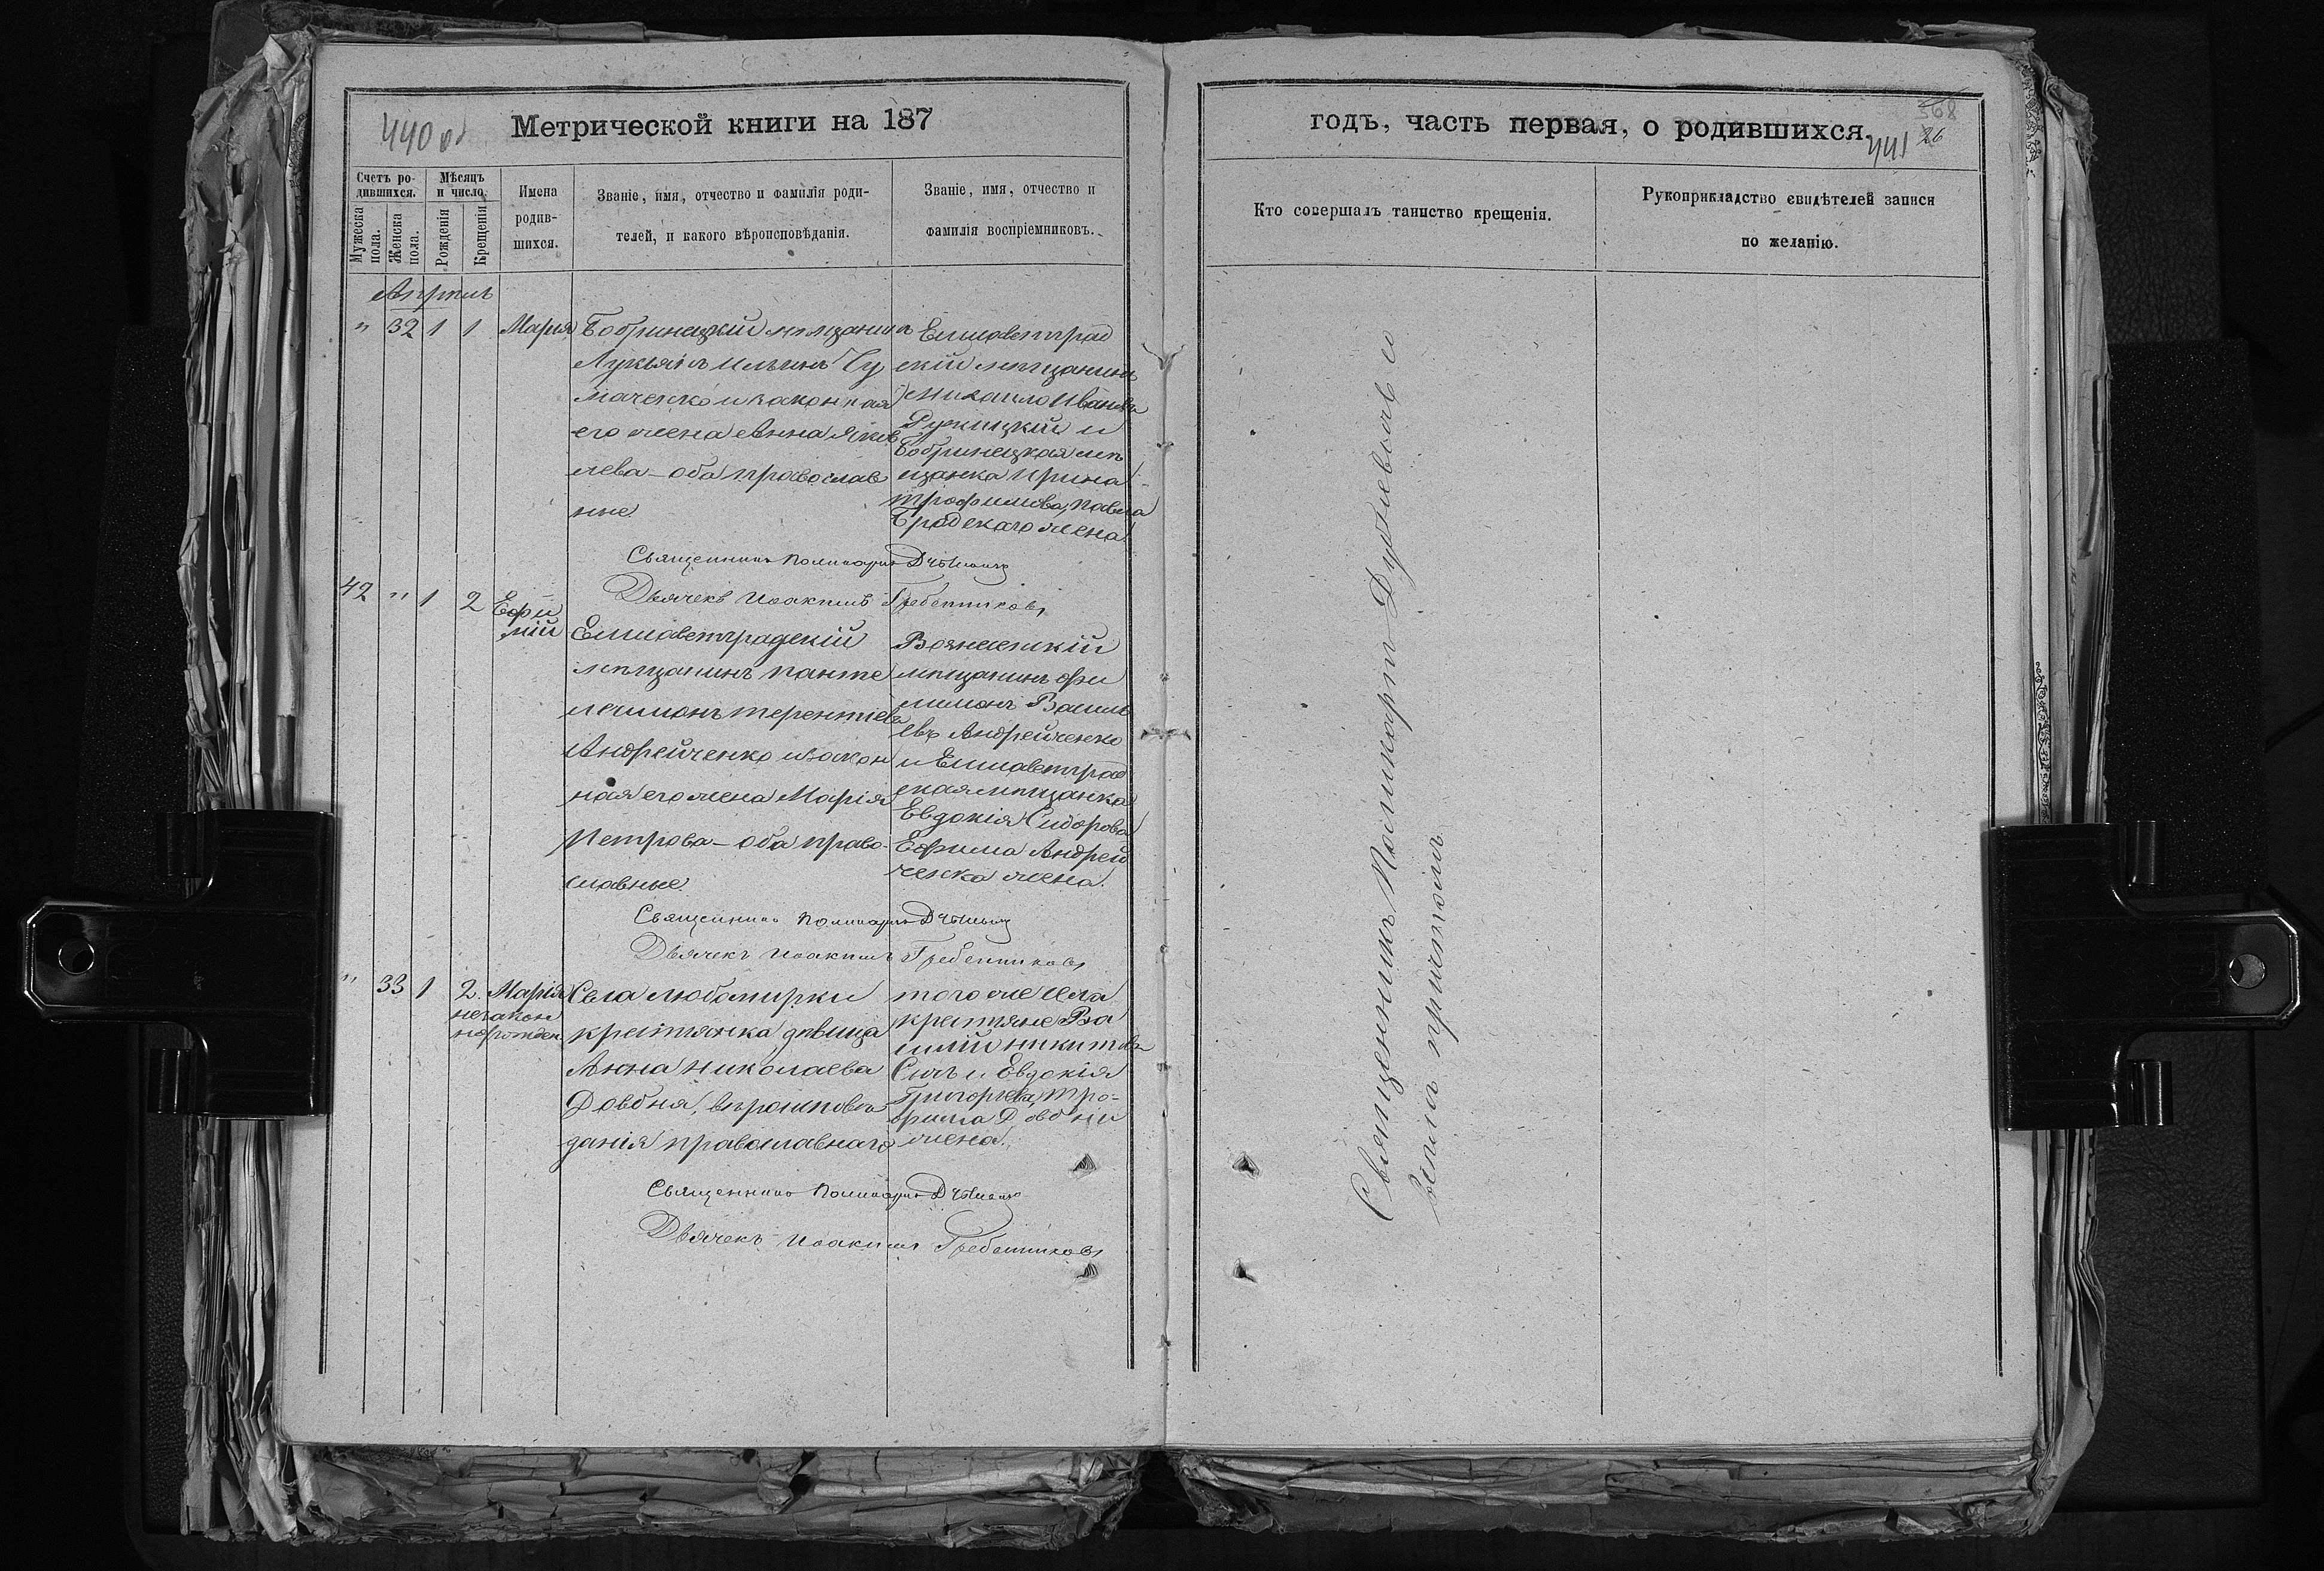 440 об
Метрической книги на 187
Счетъ ро-
дившихся.
Мѣсяцъ
и число.
Мужеска
пола.
Женска
пола.
Рожденія
Крещенія
Имена
родив-
шихся.
Званіе, имя, отчество и фамилія роди-
телей, и какого вѣроисповѣданія.
Званіе, имя, отчество и
фамилія воспріемниковъ.
Апрѣль
" 32 1 1 Марія
Бобринецкій мѣщанинъ
Лукьянъ Ильинъ Чу
маченко и законная
его жена Анна Яков
лева - оба православ
ные.
Елисаветград
скій мѣщанинъ
Михаилъ Ивановъ
Ружицкій и
Бобринецкая мѣ
щанка Ирина
Трофимова, Павла
жена
Священникъ Поликарпъ
Дьячекъ Иоакимъ Гребенниковъ
42 " 1 2 Ефи
мій
Елисаветградскій
мѣщанинъ Панте
леимонъ Терентіевъ
Андрейченко и закон
ная его жена Марія
Петрова - оба право-
славные
Вознесенскій
мѣщанинъ Фи
лимонъ Василь
евъ Андрейченко
и Елисаветград
ская мѣщанка
Евдокія Сидорова
Ефима Андрей
ченка жена.
Священникъ Поликарпъ
Дьячекъ Иоакимъ Гребенниковъ
" 33 1 2. Марія
незакон
норожден.
Села Любомирки
крестьянка дѣвица
Анна Николаева
Довбня, вѣроисповѣ
данія православнаго
того же села
крестьяне Ва
силій Никитовъ
Сычъ и Евдокія
Григорьева, Тро-
фима Довбни
жена.
Священникъ Поликарпъ
Дьячекъ Иоакимъ Гребенниковъ
годъ, часть первая, о родившихся.
441
368
26
Кто совершалъ таинство крещенія.
Рукоприкладство свидѣтелей записи
по желанію.
Священникъ Поликарпъ
причтомъ